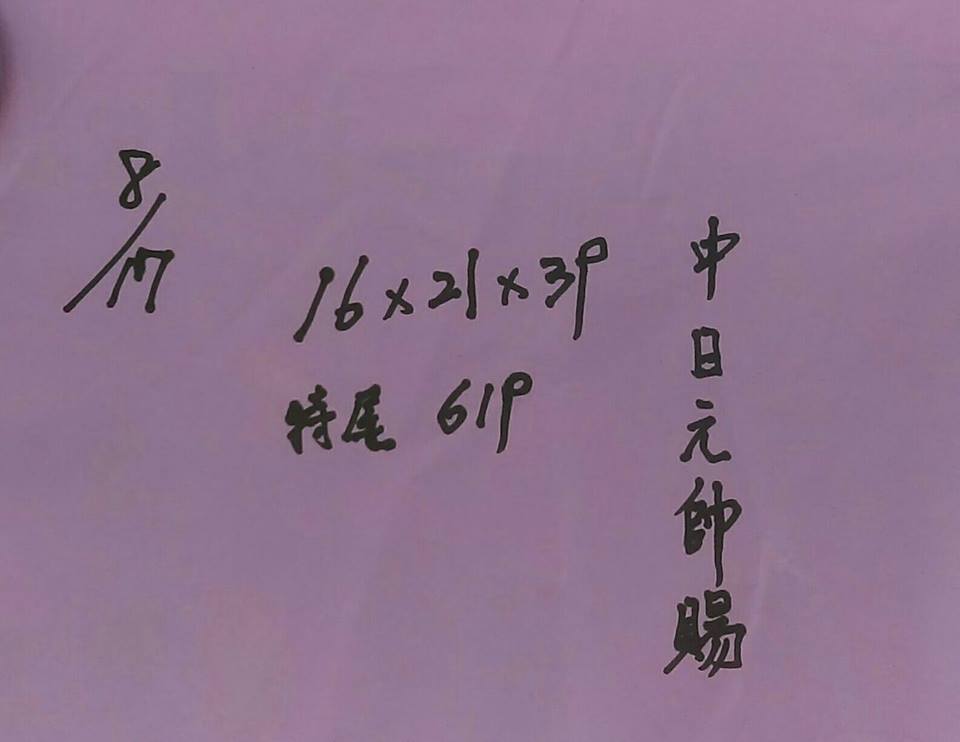 8/17
16×21×39
特尾 619
中日元帥賜